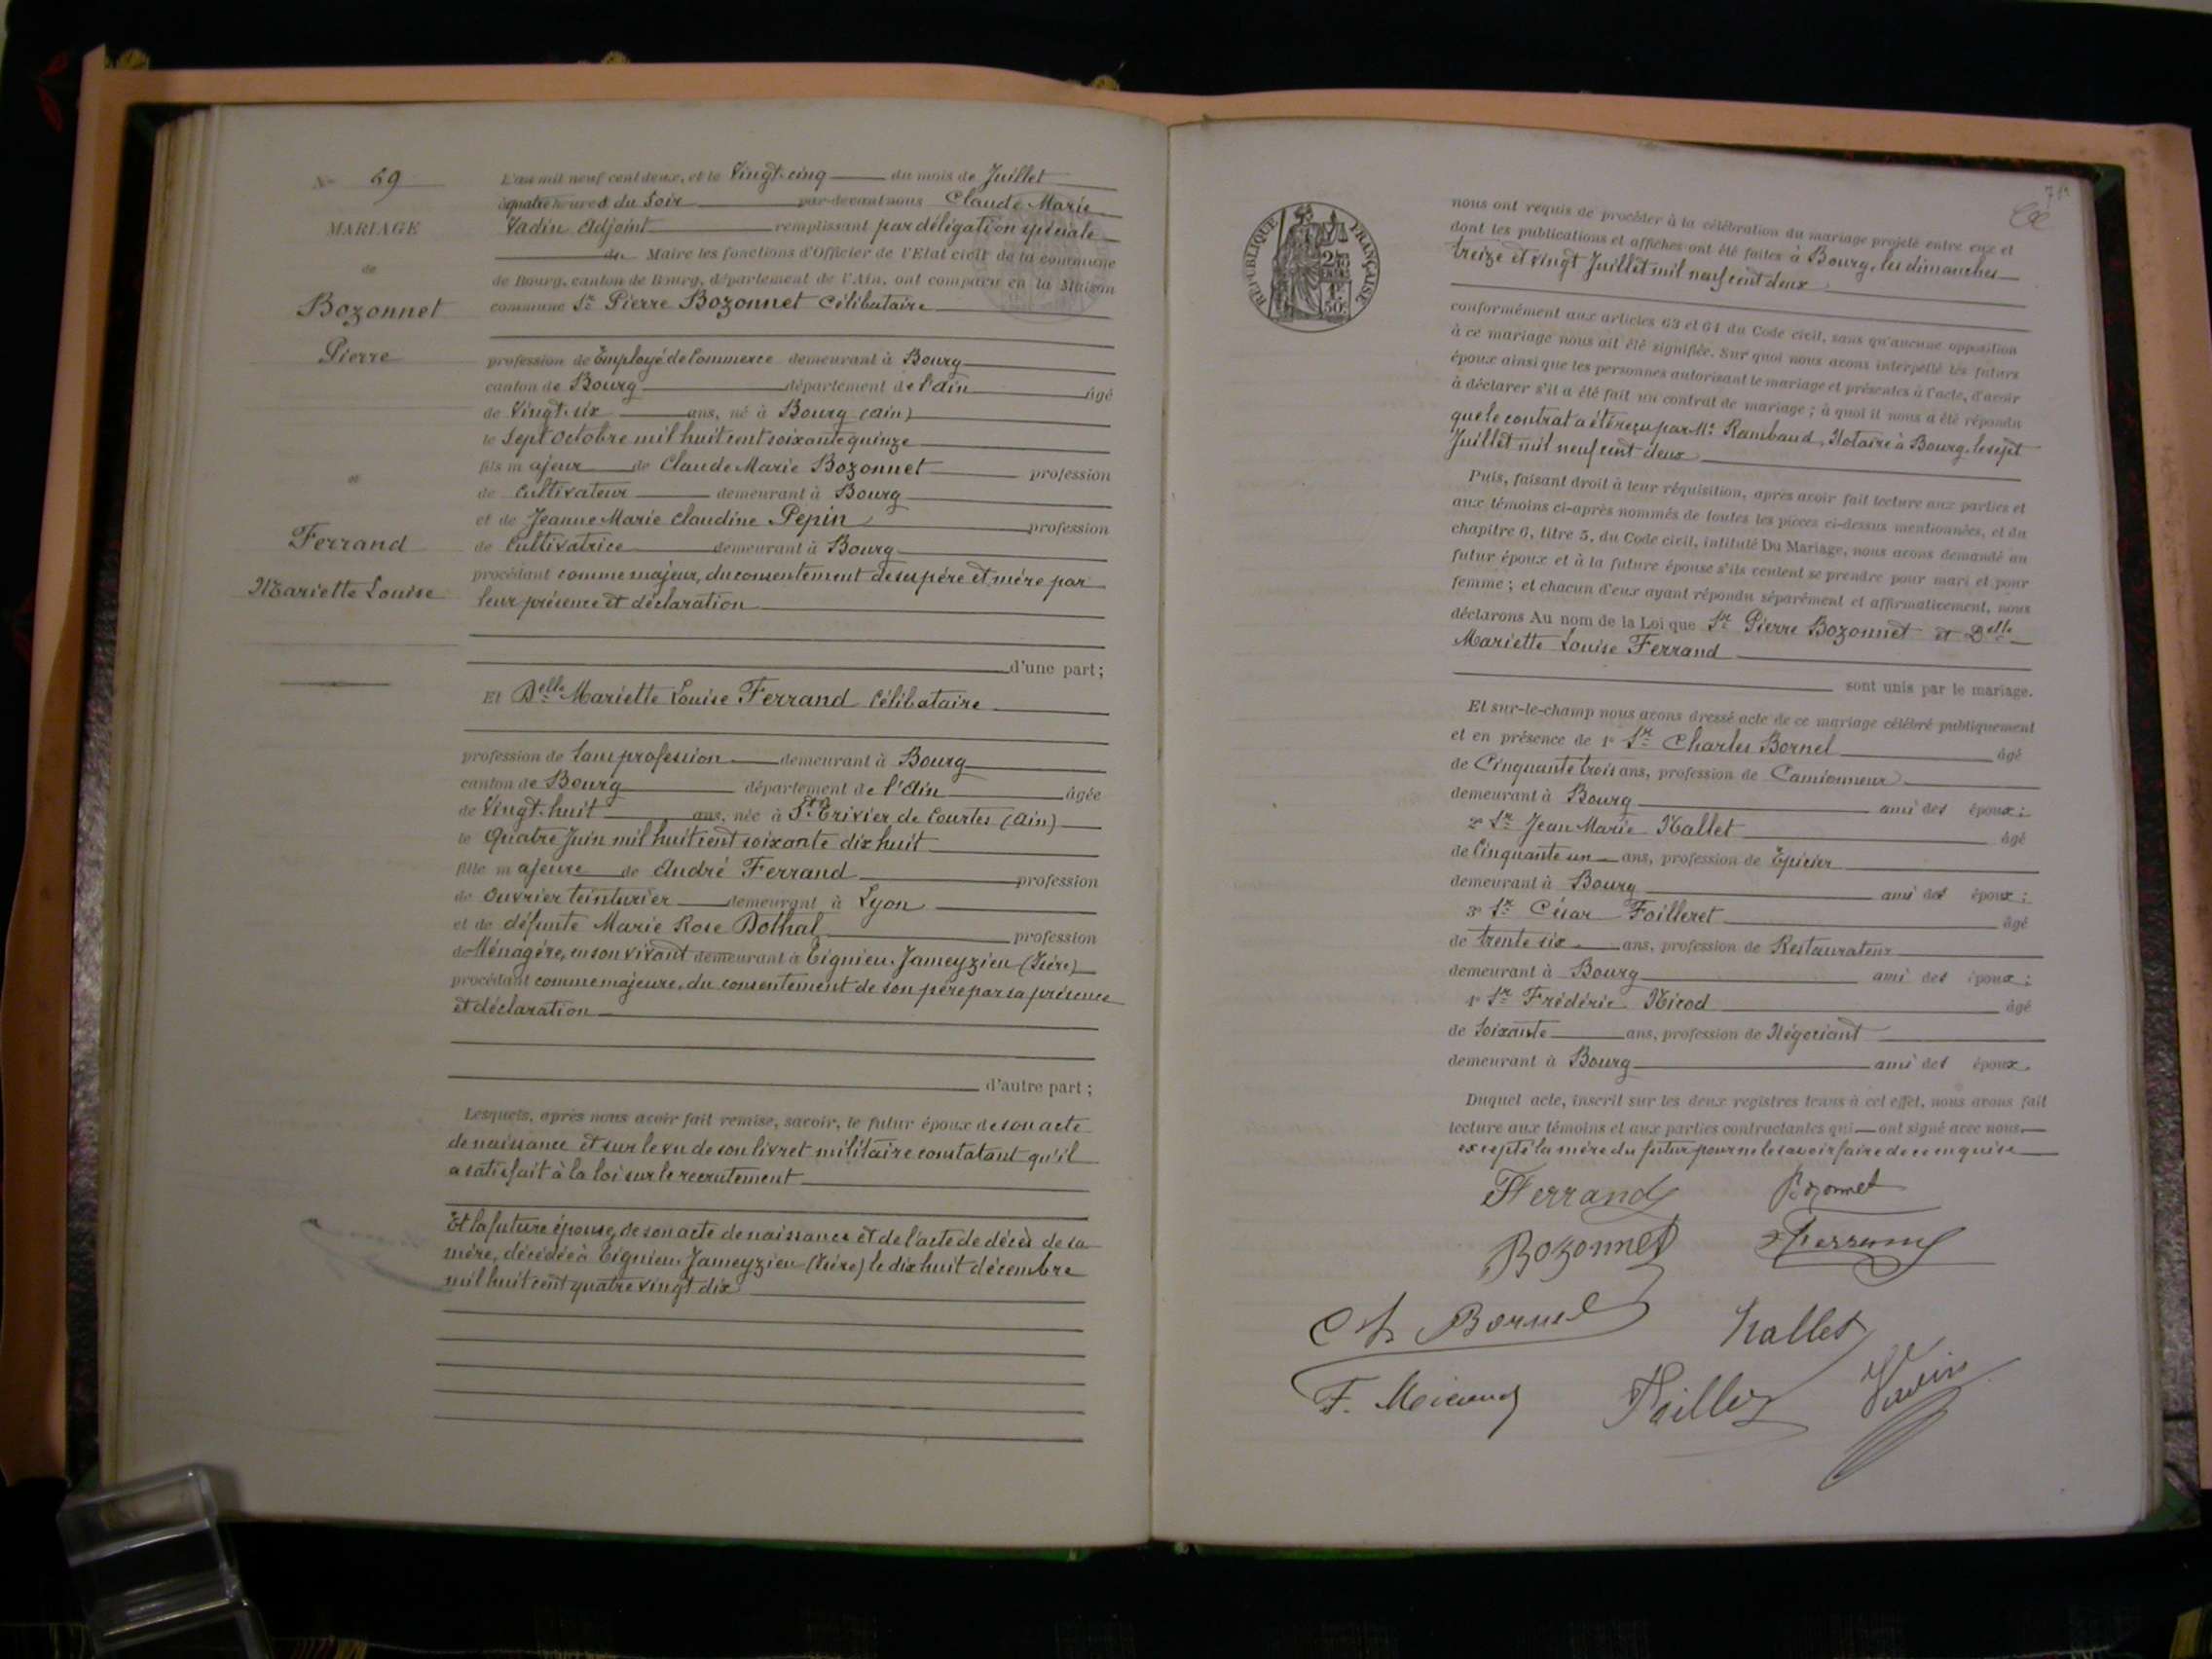 N° 69
MARIAGE
de
Bozonnet
Pierre
et
Ferrand
Mariette Louise
L'an mil neuf cent deux, et le Vingt-cinq du mois de Juillet
à quatre heures du Soir par-devant nous Claude Marie
Vadin Adjoint remplissant par délégation spéciale
du Maire les fonctions d'Officier de l'Etat civil de la commune
de Bourg, canton de Bourg, département de l'Ain, ont comparu en la Maison
commune Sr Pierre Bozonnet Célibataire
profession de Employé de Commerce demeurant à Bourg
canton de Bourg département de l'Ain âgé
de Vingt-six ans, né à Bourg (Ain)
le Sept Octobre mil huit cent soixante quinze
fils majeur de Claude Marie Bozonnet profession
de Cultivateur demeurant à Bourg
et de Jeanne Marie Claudine Pepin profession
de Cultivatrice demeurant à Bourg
procédant comme majeur, du consentement de ses père et mère par
leur présence et déclaration
d'une part;
Et Delle Mariette Louise Ferrand Célibataire
profession de Sans profession demeurant à Bourg
canton de Bourg département de l'Ain âgée
de Vingt-huit ans, née à St Trivier de Courtes (Ain)
le Quatre Juin mil huit cent soixante dix huit
fille majeure de André Ferrand profession
de Ouvrier teinturier demeurant à Lyon
et de défunte Marie Rose Dothal profession
de Ménagère, en son vivant demeurant à Tignieu-Jameyzieu (Isère)
procédant comme majeure, du consentement de son père par sa présence
et déclaration
d'autre part;
Lesquels, après nous avoir fait remise, savoir, le futur époux de son acte
de naissance et sur le vu de son livret militaire constatant qu'il
a satisfait à la loi sur le recrutement
Et la future épouse, de son acte de naissance et de l'acte de décès de sa
mère, décédée à Tignieu Jameyzieu (Isère) le dix huit décembre
mil huit cent quatre vingt dix
RÉPUBLIQUE FRANÇAISE
nous ont requis de procéder à la célébration du mariage projeté entre eux et
dont les publications et affiches ont été faites à Bourg, les dimanches
treize et vingt Juillet mil neuf cent deux
conformément aux articles 63 et 64 du Code civil, sans qu'aucune opposition
à ce mariage nous ait été signifiée. Sur quoi nous avons interpellé les futurs
époux ainsi que les personnes autorisant le mariage et présentes à l'acte, d'avoir
à déclarer s'il a été fait un contrat de mariage; à quoi il nous a été répondu
que le contrat a été reçu par Me Rambaud, Notaire à Bourg, le sept
Juillet mil neuf cent deux
Puis, faisant droit à leur réquisition, après avoir fait lecture aux parties et
aux témoins ci-après nommés de toutes les pièces ci-dessus mentionnées, et du
chapitre 6, titre 5, du Code civil, intitulé Du Mariage, nous avons demandé au
futur époux et à la future épouse s'ils veulent se prendre pour mari et pour
femme; et chacun d'eux ayant répondu séparément et affirmativement, nous
déclarons Au nom de la Loi que Sr Pierre Bozonnet et Delle
Mariette Louise Ferrand
sont unis par le mariage.
Et sur-le-champ nous avons dressé acte de ce mariage célébré publiquement
et en présence de 1° Sr Charles Bornel âgé
de Cinquante trois ans, profession de Camionneur
demeurant à Bourg ami des époux;
2° Sr Jean Marie Nallet âgé
de Cinquante un ans, profession de Epicier
demeurant à Bourg ami des époux;
3° Sr César Foilleret âgé
de trente six ans, profession de Restaurateur
demeurant à Bourg ami des époux;
4° Sr Frédéric Nicod âgé
de Soixante ans, profession de Négociant
demeurant à Bourg ami des époux.
Duquel acte, inscrit sur les deux registres tenus à cet effet, nous avons fait
lecture aux témoins et aux parties contractantes qui ont signé avec nous
excepté la mère du futur pour ne le savoir faire de ce enquise
Ferrand Bozonnet
Bozonnet Ferrand
Ch Bornel Nallet
Vadin